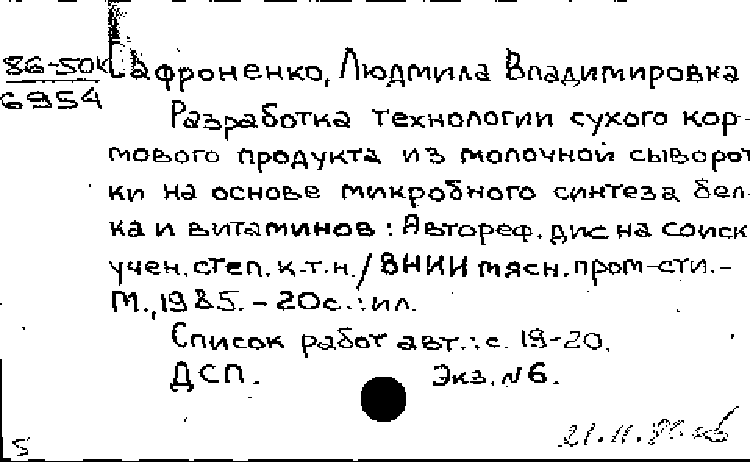 86-50к
6954
Сафроненко, Людмила Владимировка
Разработка технологии сухого кор-
мового продукта из молочной сыворот
ки на основе микробного синтеза бел-
ка и витаминов : Автореф. дис на соиск
учен. степ. к.т.н. / ВНИИ мясн. пром-сти. -
М., 1985. - 20с. : ил.
Список работ авт.: с. 19-20.
ДСП. Экз. № 6.
21.11.
5